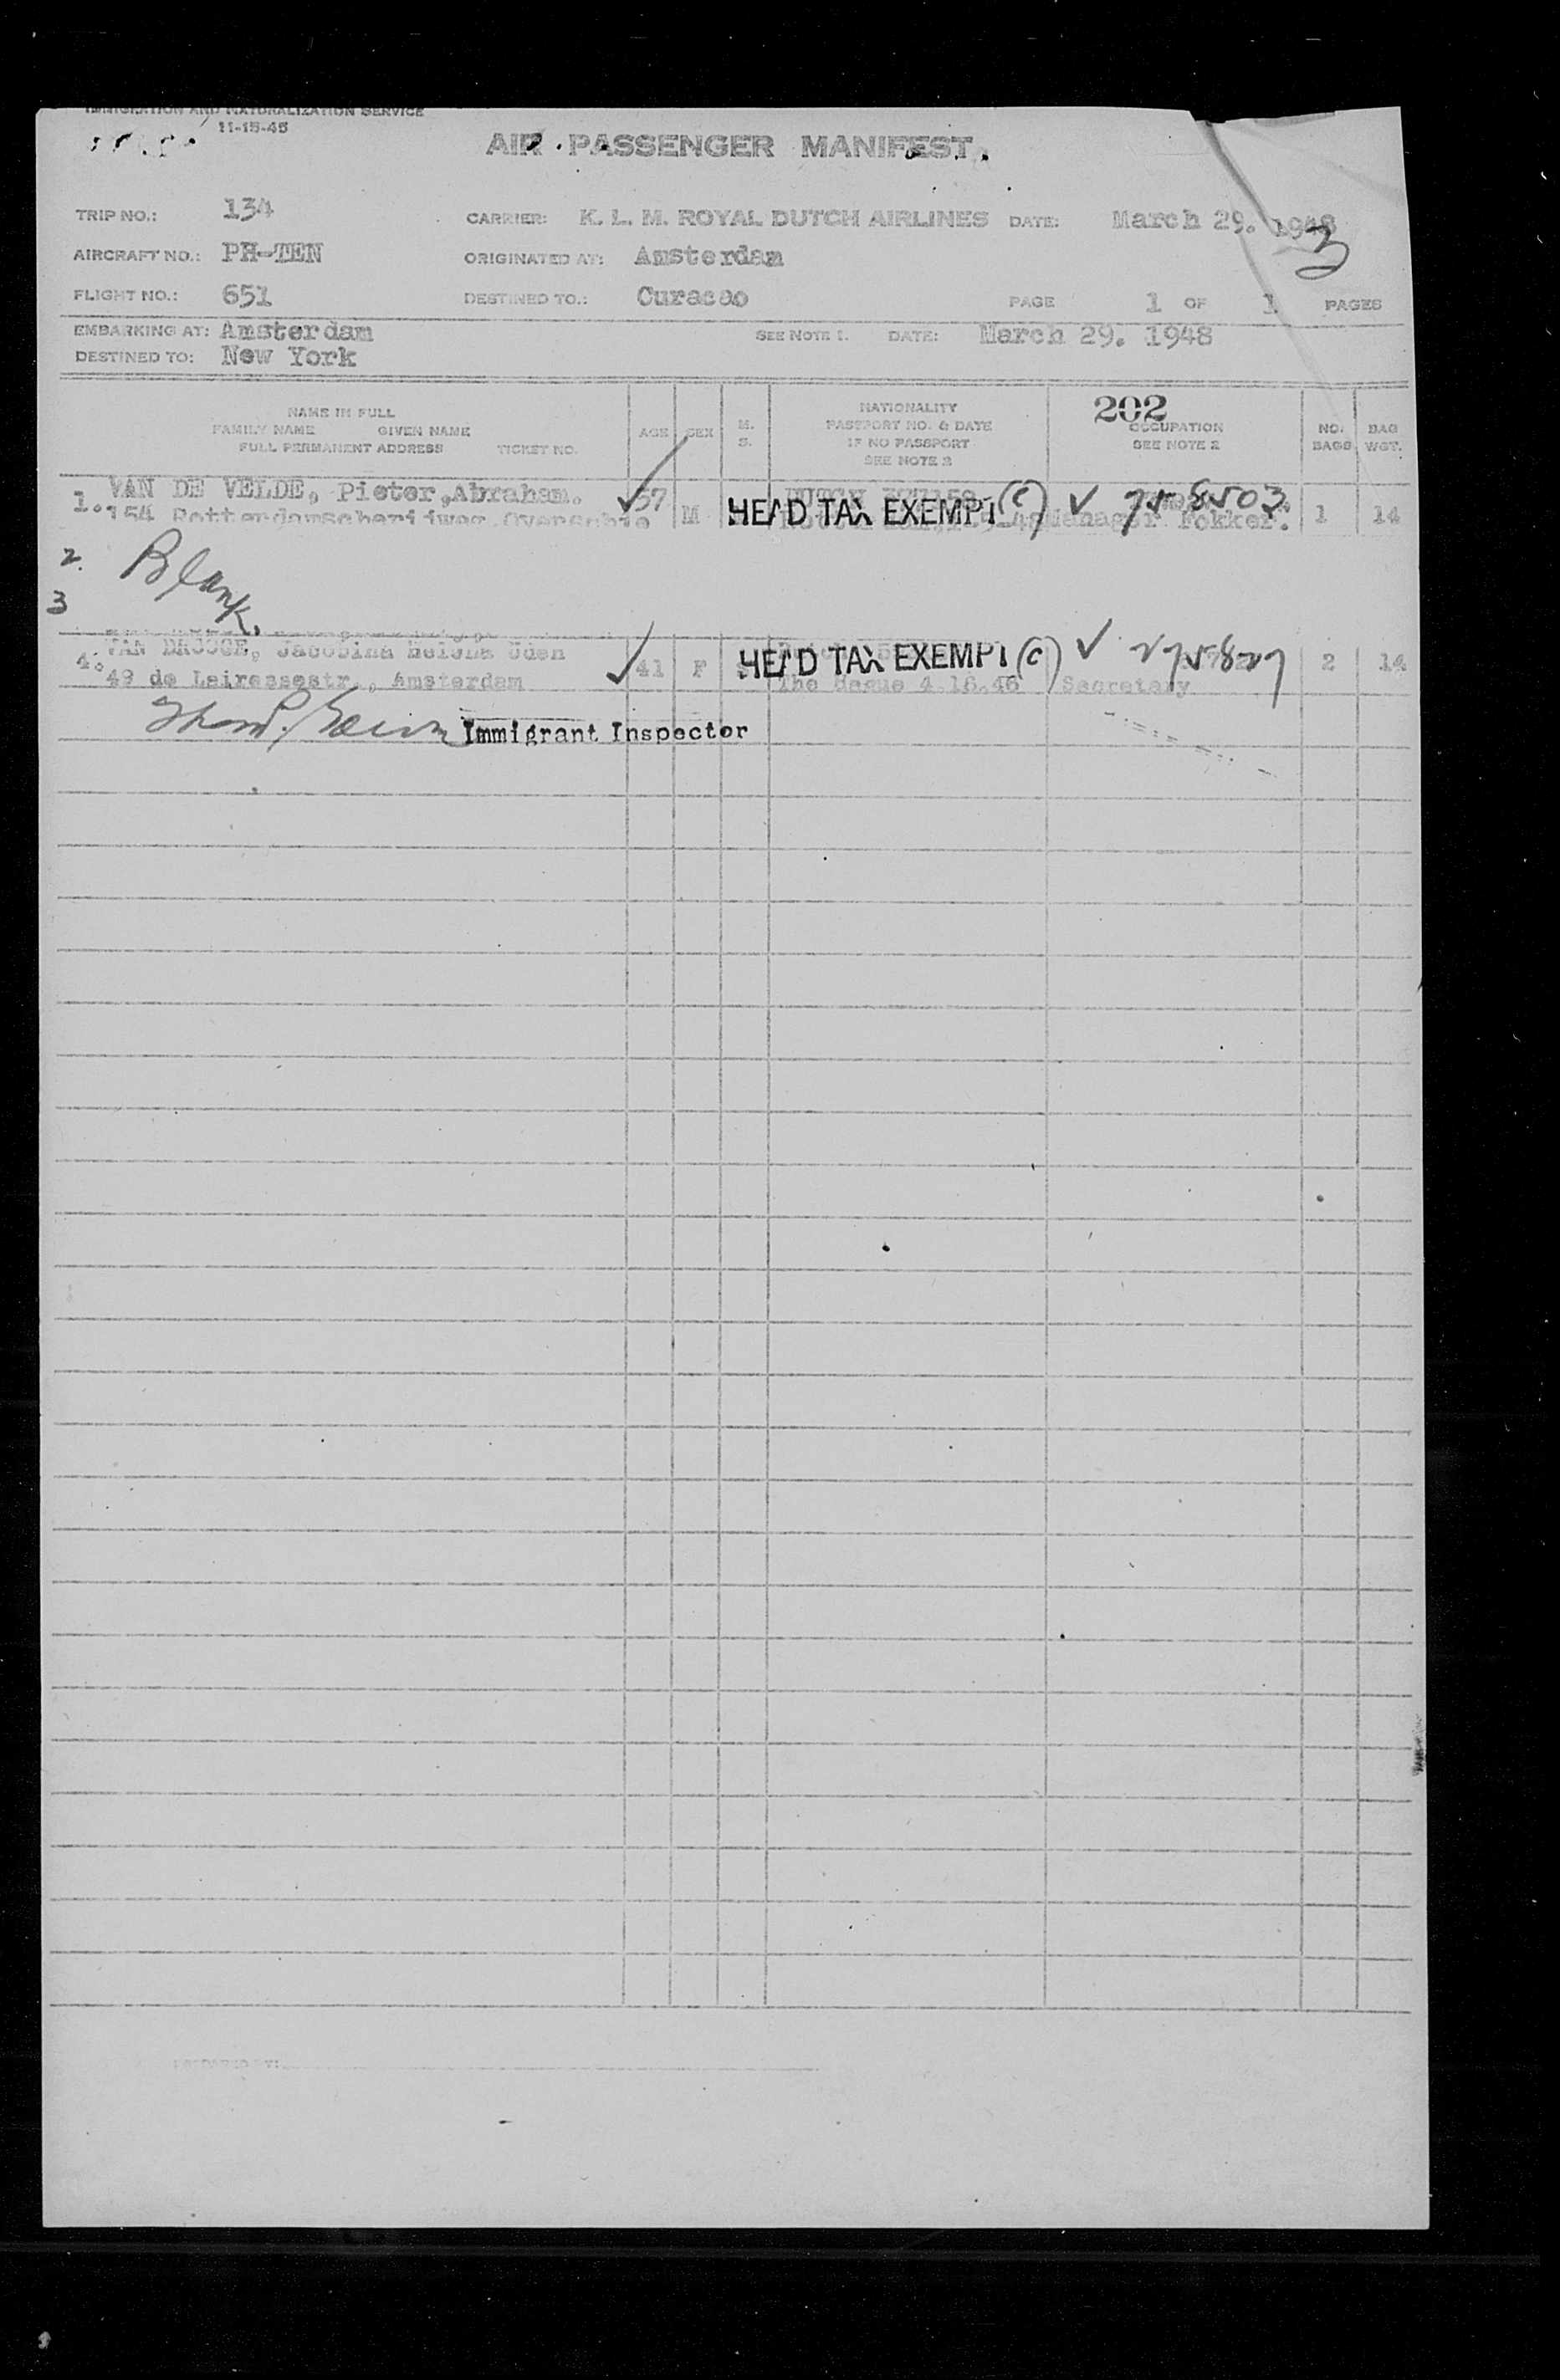 IMMIGRATION AND NATURALIZATION SERVICE
11-15-45
AIR PASSENGER MANIFEST
TRIP NO.: 134 CARRIER: K. L. M. ROYAL DUTCH AIRLINES DATE: March 29. 1948
3
AIRCRAFT NO.: PH-TEN ORIGINATED AT: Amsterdam
FLIGHT NO.: 651 DESTINED TO.: Curacao PAGE 1 OF 1 PAGES
EMBARKING AT: Amsterdam SEE NOTE 1. DATE: March 29. 1948
DESTINED TO: New York
202
NAME IN FULL
FAMILY NAME GIVEN NAME
FULL PERMANENT ADDRESS TICKET NO.
AGE SEX M. S.
NATIONALITY
PASSPORT NO. & DATE
IF NO PASSPORT
SEE NOTE 2
OCCUPATION
SEE NOTE 2
NO. BAGS
BAG WGT.
1. VAN DE VELDE, Pieter,Abraham. 57 M HEAD TAX EXEMPT (C) Manager Fokker. 1 14
154
2. Blank.
3
4. VAN 41 F HEAD TAX EXEMPT (C) 2 14
49 de Lairessestr., Amsterdam The Hague 4.16.46 Secretary
Immigrant Inspector